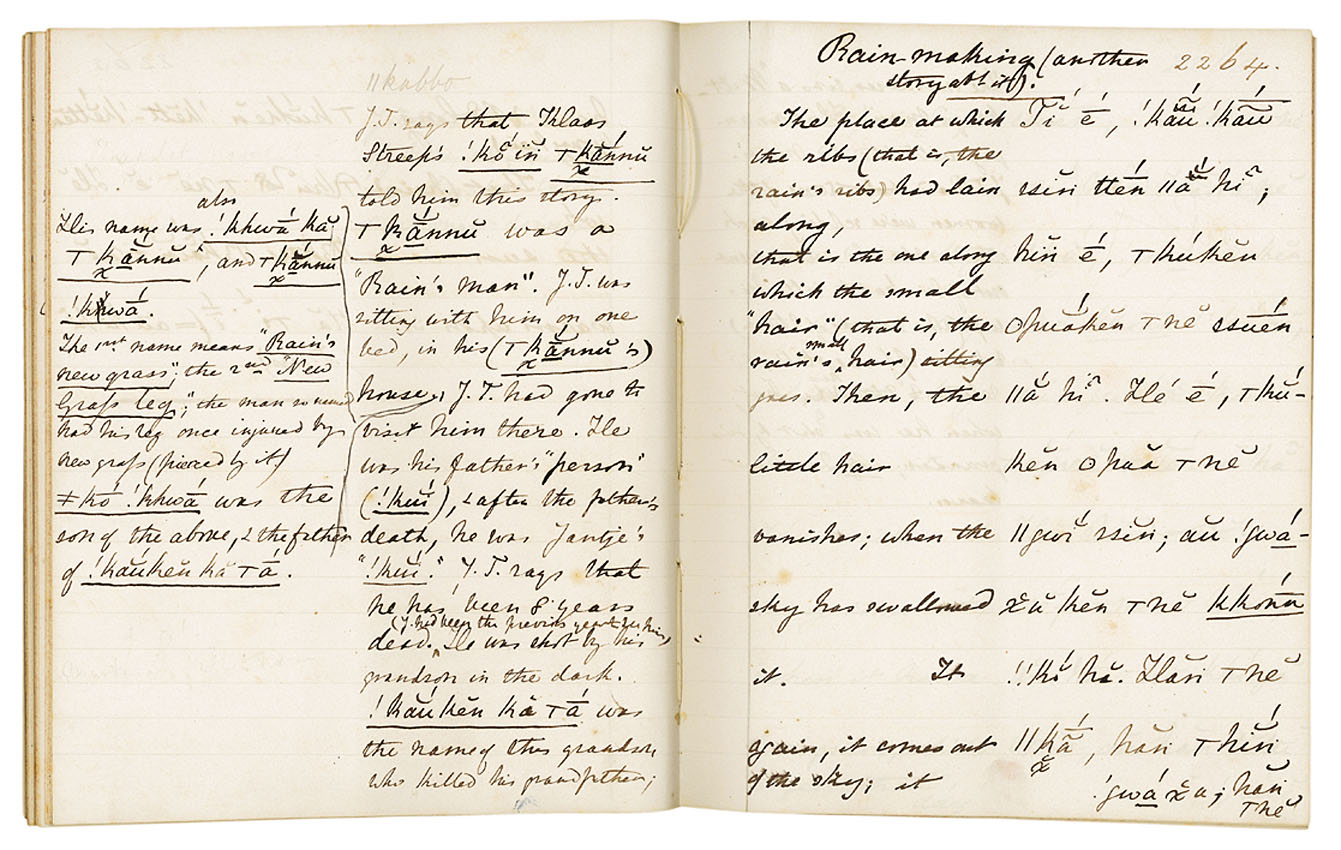 also
His name was !khwá kă
T kắnnŭ, and T kắnnŭ
x x
!khwá.
The 1st name means "Rain's
new grass"; the 2nd "New
Grass leg"; the man so named
had his leg once injured by
new grass (pierced by it)
≠kō !khwá was the
son of the above, & the father
of !kắŭkĕn kă T á.
||kabbo
J.T. says that Klaas
Streep's !kŏ ĭn T kắnnŭ
x
told him this story.
T kắnnŭ was a
x
"Rain's man". J.T. was
sitting with him on one
bed, in his (T kắnnŭ's)
x
house, J.T. had gone to
visit him there. He
was his father's "person"
(!kuĭ), & after the father's
death, he was Jantje's
"!kuĭ." J.T. says that
he has been 8 years
(J. had been the previous year to see him)
dead. He was shot by his
grandson in the dark.
!kắŭkĕn kă T á was
the name of this grandson
who killed his grandfather;
Rain-making (another 2264.
story abt it).
The place at which Tĭ é, !kắŭ !kắŭ
the ribs (that is, the
rain's ribs) had lain ssĭn ttĕn ||ắ hĭ;
along,
that is the one along hĭn é, T kúkĕn
which the small
"hair" (that is, the ʘpuákĕn T nĕ ssuĕn
small
rain's hair) sitting
goes. Then, the ||ắ hĭ. Hé é, T kŭ-
little hair kĕn ʘpuă T nĕ
vanishes; when the ||gwĭ ssĭn; aŭ !gwá-
sky has swallowed x̆ŭ kĕn T nĕ kkónŭ
it. It !!kĭ hă. Hăn T nĕ
again, it comes out ||kắ, hăn T hĭn
x
of the sky; it !gwá x̆a; hăn
T nĕ